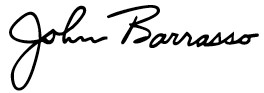 John Barrasso